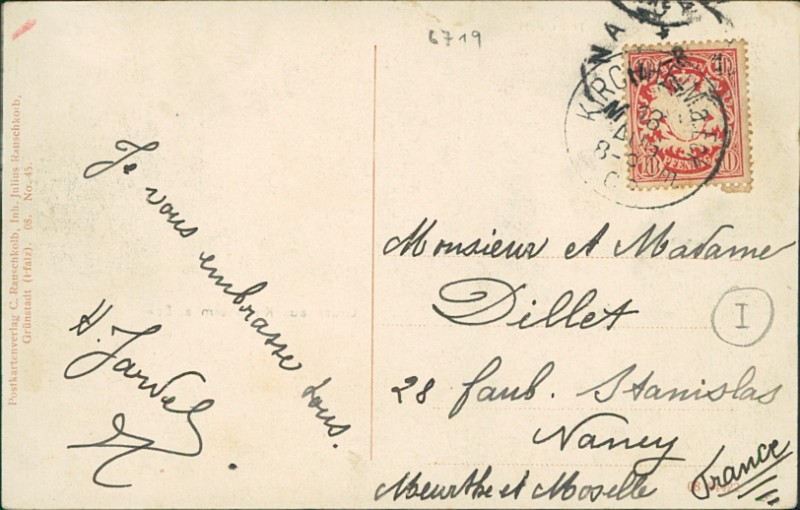 6719
KIRCHHEIM a. ECK
MAI
8-9
10 PFENNIG 10
Je vous embrasse tous.
Monsieur et Madame
Dillet
28 faub. Stanislas
Nancy
Meurthe et Moselle France
I
Postkartenverlag C. Rauschkolb, Inh. Julius Rauschkolb,
Grünstadt (Pfalz). 08. No. 45.